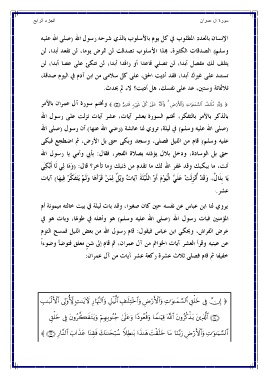 سورة آل عمران
الجزء الرابع
الإنسان بالعدد المطلوب في كل يوم بالأسلوب الذي شرحه رسول الله (صلى الله عليه
وسلم) الصدقات الكثيرة، بهذا الأسلوب تصدقت لن تمرض يوما، لن تقعد أبدا، لن
يتلف لك مفصل أبدا، لن تصلي قاعدا أو راقدا أبدا، لن تتكئ على عصا أبدا، لن
تستند على غيرك أبدا، فقد أديت الحق، على كل سلامى من ابن آدم في اليوم صدقة،
ثلاثمائة وستين، عد على نفسك، هل أديت؟ لا، لم نعدد.
﴿ وَلِلَّهِ مُلْكُ السَّمَاوَاتِ وَالْأَرْضِ وَاللَّهُ عَلَىٰ كُلِّ شَيْءٍ قَدِيرٌ ﴾ وتختم سورة آل عمران بالأمر
بالذكر بالأمر بالتفكر، تختم السورة بعشر آيات، عشر آيات نزلت على رسول الله
(صلى الله عليه وسلم) في ليلة، تروي لنا عائشة (رضي الله عنها) أن رسول الله (صلى
الله عليه وسلم) قام من الليل فصلى، وسجد وبكى حتى بل الأرض، ثم اضطجع فبكى
حتى بل الوسادة، ودخل بلال يؤذنه بصلاة الفجر، فقال: بأبي وأمي يا رسول الله
أنت، ما يبكيك وقد غفر الله لك ما تقدم من ذنبك وما تأخر؟ قال: (وَمَا لِي لَا أَبْكِي
يَا بِلَالُ، وَقَدْ أُنْزِلَتْ عَلَيَّ الْيَوْمَ أَوْ اللَّيْلَةَ آيَاتٌ وَيْلٌ لِمَنْ قَرَأَهَا وَلَمْ يَتَفَكَّرْ فِيهَا) آيات
عشر.
يروي لنا ابن عباس عن نفسه حين كان صغيرا، وقد بات ليلة في بيت خالته ميمونة أم
المؤمنين فبات رسول الله (صلى الله عليه وسلم) هو وأهله في طولها، وبات هو في
عرض الفراش، ويحكي ابن عباس فيقول: قام رسول الله من بعض الليل فمسح النوم
عن عينيه وقرأ العشر آيات الخواتم من آل عمران، ثم قام إلى شن معلق فتوضأ وضوءاً
خفيفا ثم قام فصلى ثلاث عشرة ركعة عشر آيات من آل عمران:
﴿ إِنَّ فِى خَلْقِ ٱلسَّمَـٰوَٰتِ وَٱلْأَرْضِ وَٱخْتِلَـٰفِ ٱلَّيْلِ وَٱلنَّهَارِ لَـَٔايَـٰتٍ لِّأُو۟لِى ٱلْأَلْبَـٰبِ
ٱلَّذِينَ يَذْكُرُونَ ٱللَّهَ قِيَـٰمًا وَقُعُودًا وَعَلَىٰ جُنُوبِهِمْ وَيَتَفَكَّرُونَ فِى خَلْقِ
ٱلسَّمَـٰوَٰتِ وَٱلْأَرْضِ رَبَّنَا مَا خَلَقْتَ هَـٰذَا بَـٰطِلًا سُبْحَـٰنَكَ فَقِنَا عَذَابَ ٱلنَّارِ ﴾